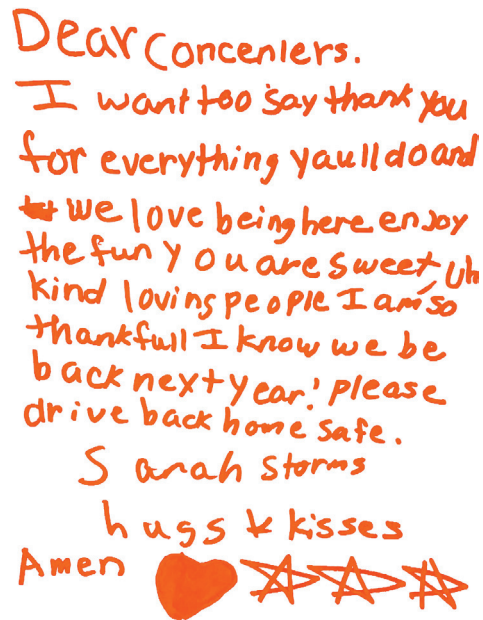 Dear Concenlers.
I want too say thank you
for everything yaull do and
we love being here enjoy
the fun you are sweet, uh
kind loving people I am so
thankfull I know we be
back next year! please
drive back home safe.
Sarah Storms
hugs & kisses
Amen